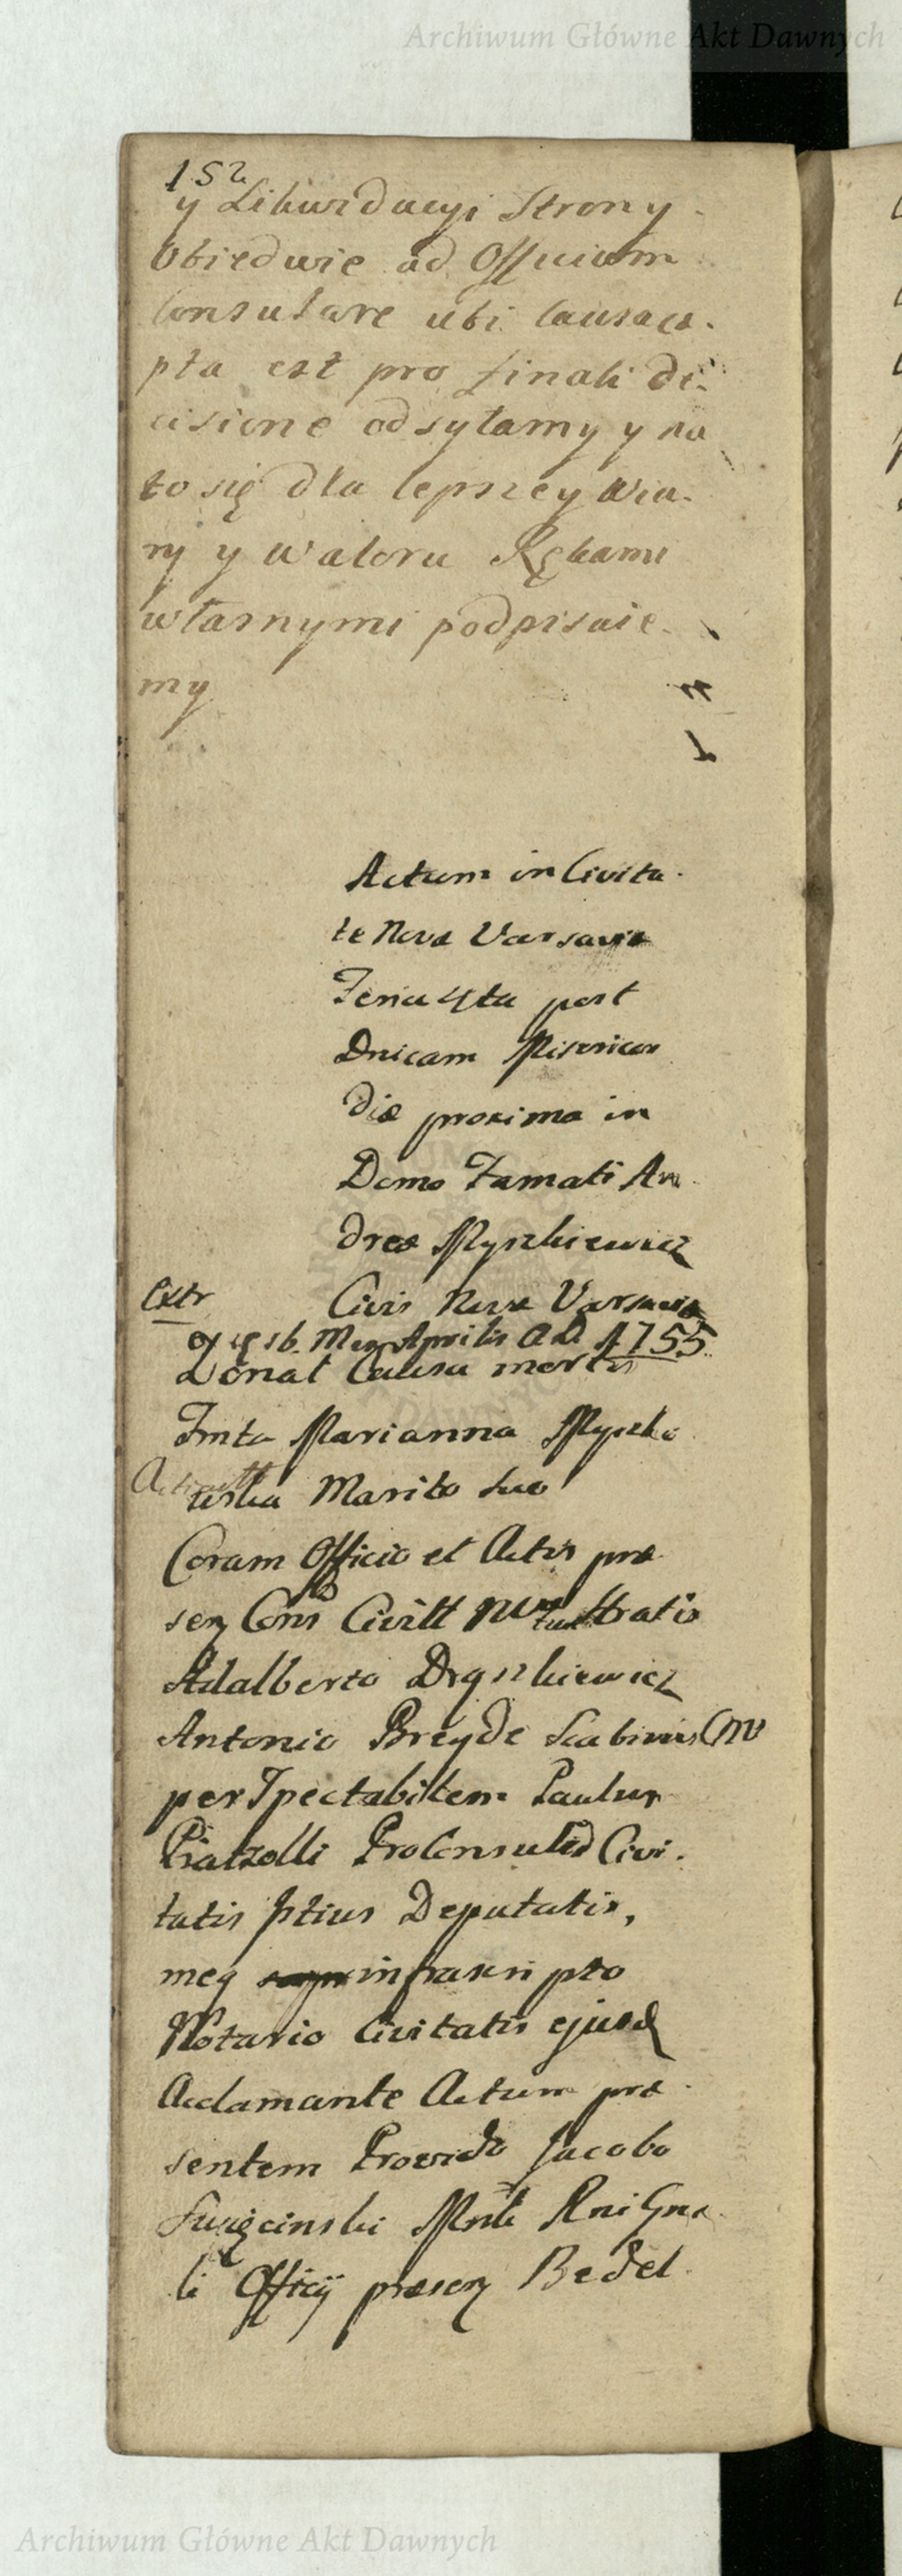 Archiwum Główne Akt Dawnych
152
y Likwidacyi Strony
Obiedwie ad Officium
Consulare ubi causa ce-
pta est pro finali de-
cisione odsyłamy y na
to się dla lepszey wia-
ry y waloru Rękami
własnymi podpisuie-
my
Actum in Civita-
te Nova Varsavia
Feria 4ta post
Dnicam Misericor
diæ proxima in
Domo Famati An-
dreæ Myszkiewicz
Extr
Civis Novæ Varsaviæ
16 Mens Aprilis A.D. 1755
Donat Causa mortis
Fmta Marianna Myszke
Marito suo
Coram Officio et Actis præ
sen Cons Civitt
Adalberto Dryszkiewicz
Antonio Breyde Scabinis CNV
per Spectabilem Paulum
Piatzolli ProConsulem Civi-
tatis istius Deputatis,
meq infrascri pto
Notario Civitatis ejusd
Acclamante Actum præ-
sentem Provido Jacobo
Święcinski Mnli Rni Gne-
li Officij præsen Bedel
Archiwum Główne Akt Dawnych